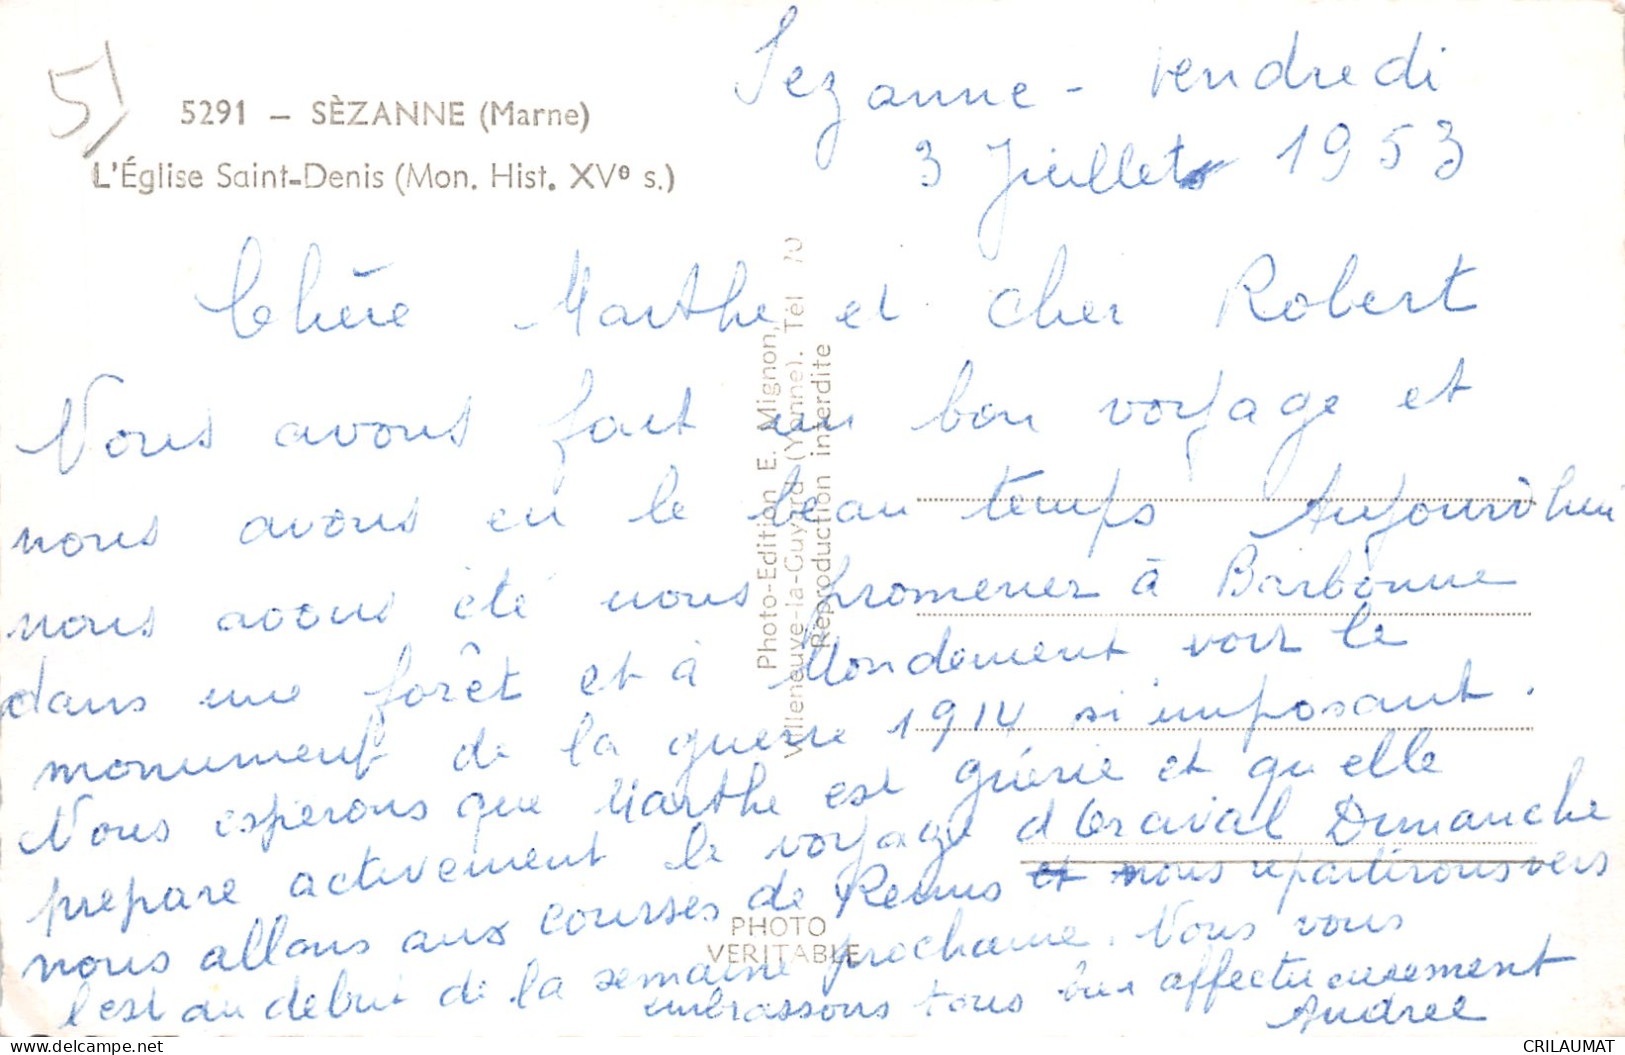 5)
5291 – SÈZANNE (Marne)
L'Église Saint-Denis (Mon. Hist. XVe s.)
Sezanne - vendredi
3 Juillet 1953
Chère Marthe et cher Robert
Nous avons fait un bon voyage et
nous avons eu le beau temps Aujourd'hui
nous avons été nous promener à Barbonne
dans une forêt et à Mondement voir le
monument de la guerre 1914 si imposant.
Nous esperons que Marthe est guérie et qu elle
prepare activement le voyage d Oraval Dimanche
nous allons aux courses de Reims et nous repartirons vers
l'est au debut de la semaine prochaine. Nous vous
embrassons tous bien affectueusement
Andree
Photo-Edition E. Mignon,
Villeneuve-la-Guyard (Yonne). Tél 70
Reproduction interdite
PHOTO
VERITABLE
CRILAUMAT